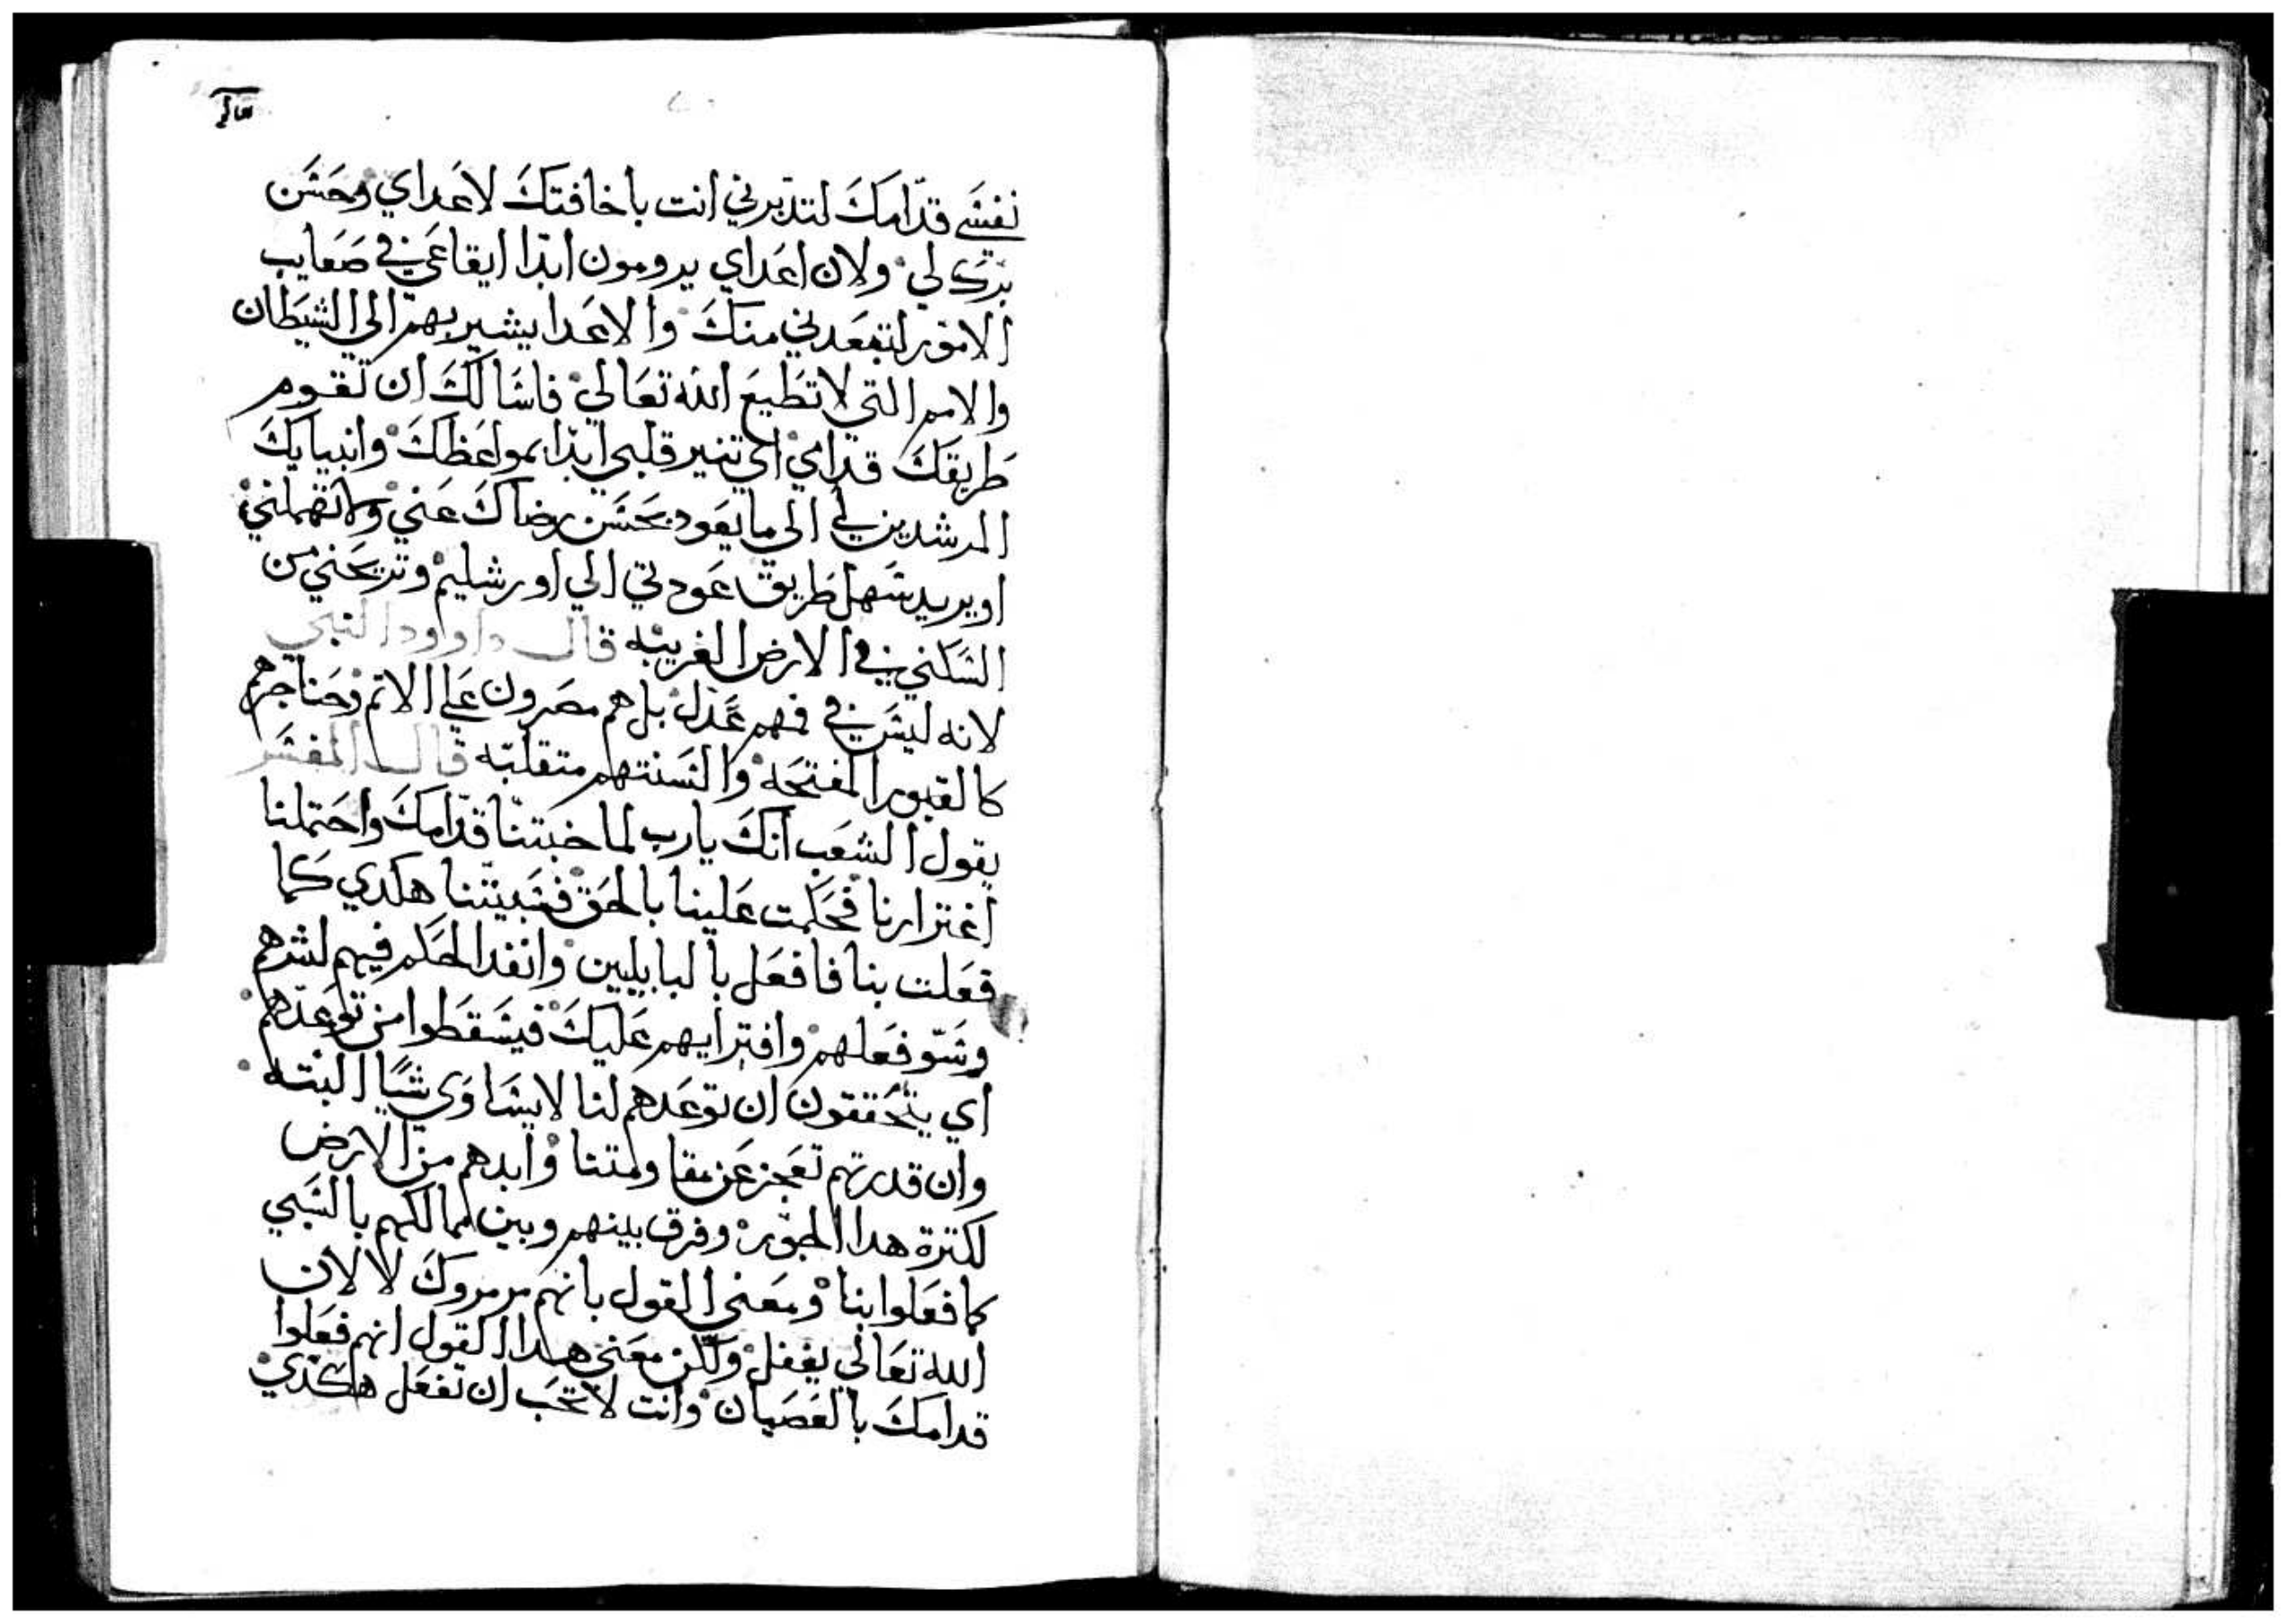 نفسي قدامك لتدبرني انت باخافتك لاعداي وحسن
برك لي ولان اعداي يرومون ابدا ايقاعي في صعايب
الامور لتبعدني منك والاعدا يشير بهم الي الشيطان
والامم التي لا تطيع الله تعالي فاسالك ان تقوم
طريقك قدامي اي تنير قلبي ابدا بمواعظك وانبيايك
المرشدين لي الي ما يعود بحسن رضاك عني ولا تهملني
او يريد سهل طريق عودتي الي اورشليم وتريحني من
السكني في الارض الغريبه قال داوود النبي
لانه ليس في فمهم عدل بل هم مصرون علي الاتم وحناجرهم
كالقبور المفتحه والسنتهم متقلبه قال المفسر
يقول الشعب انك يارب لما خبتنا قدامك واحتملنا
اغترارنا فحكمت علينا بالحق فسبيتنا هكدي كما
فعلت بنا فافعل بالبابليين وانفد الحكم فيهم لشرهم
وسو فعلهم وافترايهم عليك فيسقطوا من توعدهم
اي يتحققون ان توعدهم لنا لا يساوي شيا البته
وان قدرتهم تعجز عن مقاومتنا وابدهم من الارض
لكترة هدا الجور وفرق بينهم وبين ممالكهم بالسبي
كما فعلوا بنا ومعني القول بانهم مرمروك لا لان
الله تعالي يغفل ولكن معني هدا القول انهم فعلوا
قدامك بالعصيان وانت لا تحب ان تفعل هكدي